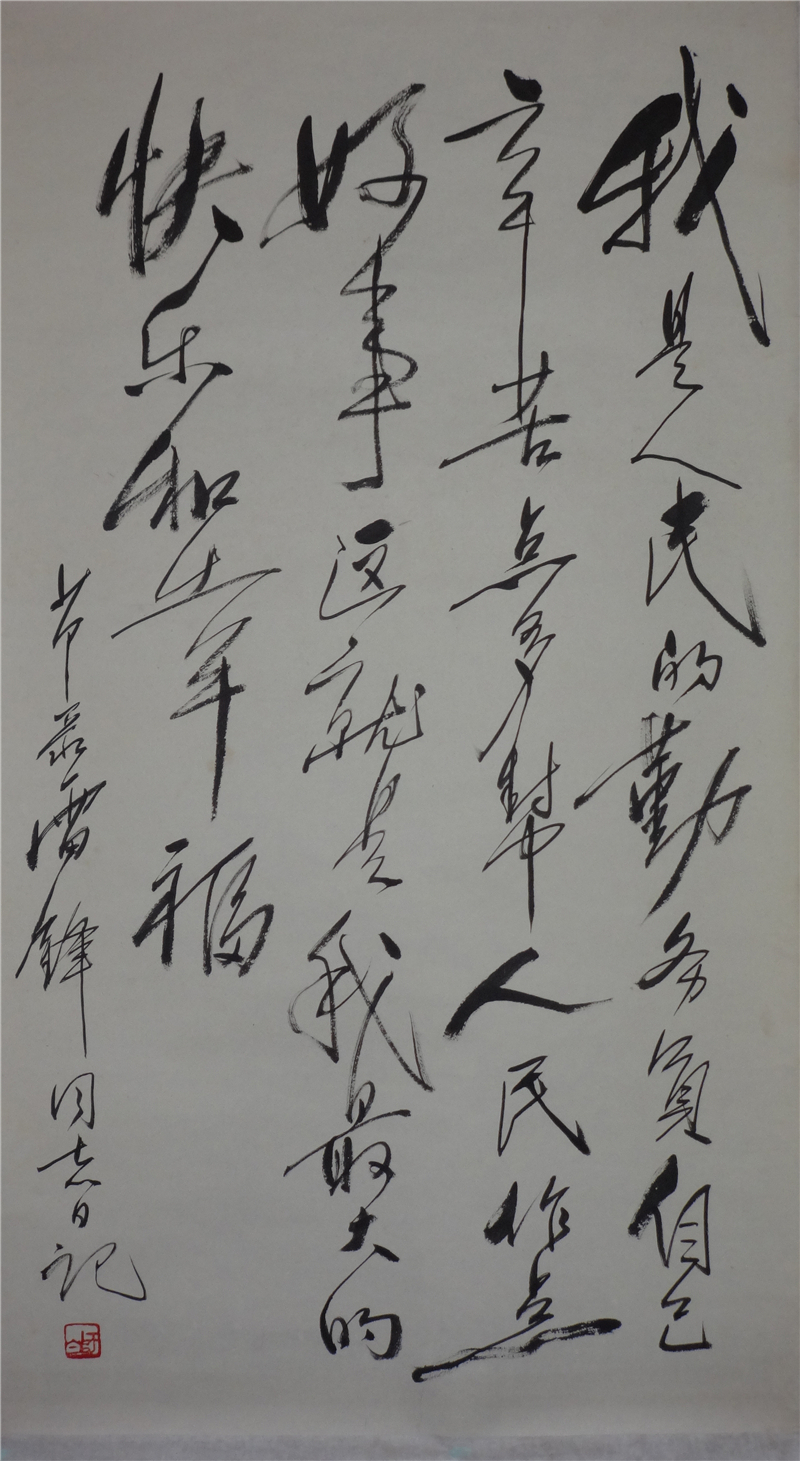 我是人民的勤务員自己
辛苦点多幫人民作点
好事这就是我最大的
快乐和幸福
节录雷鋒同志日记